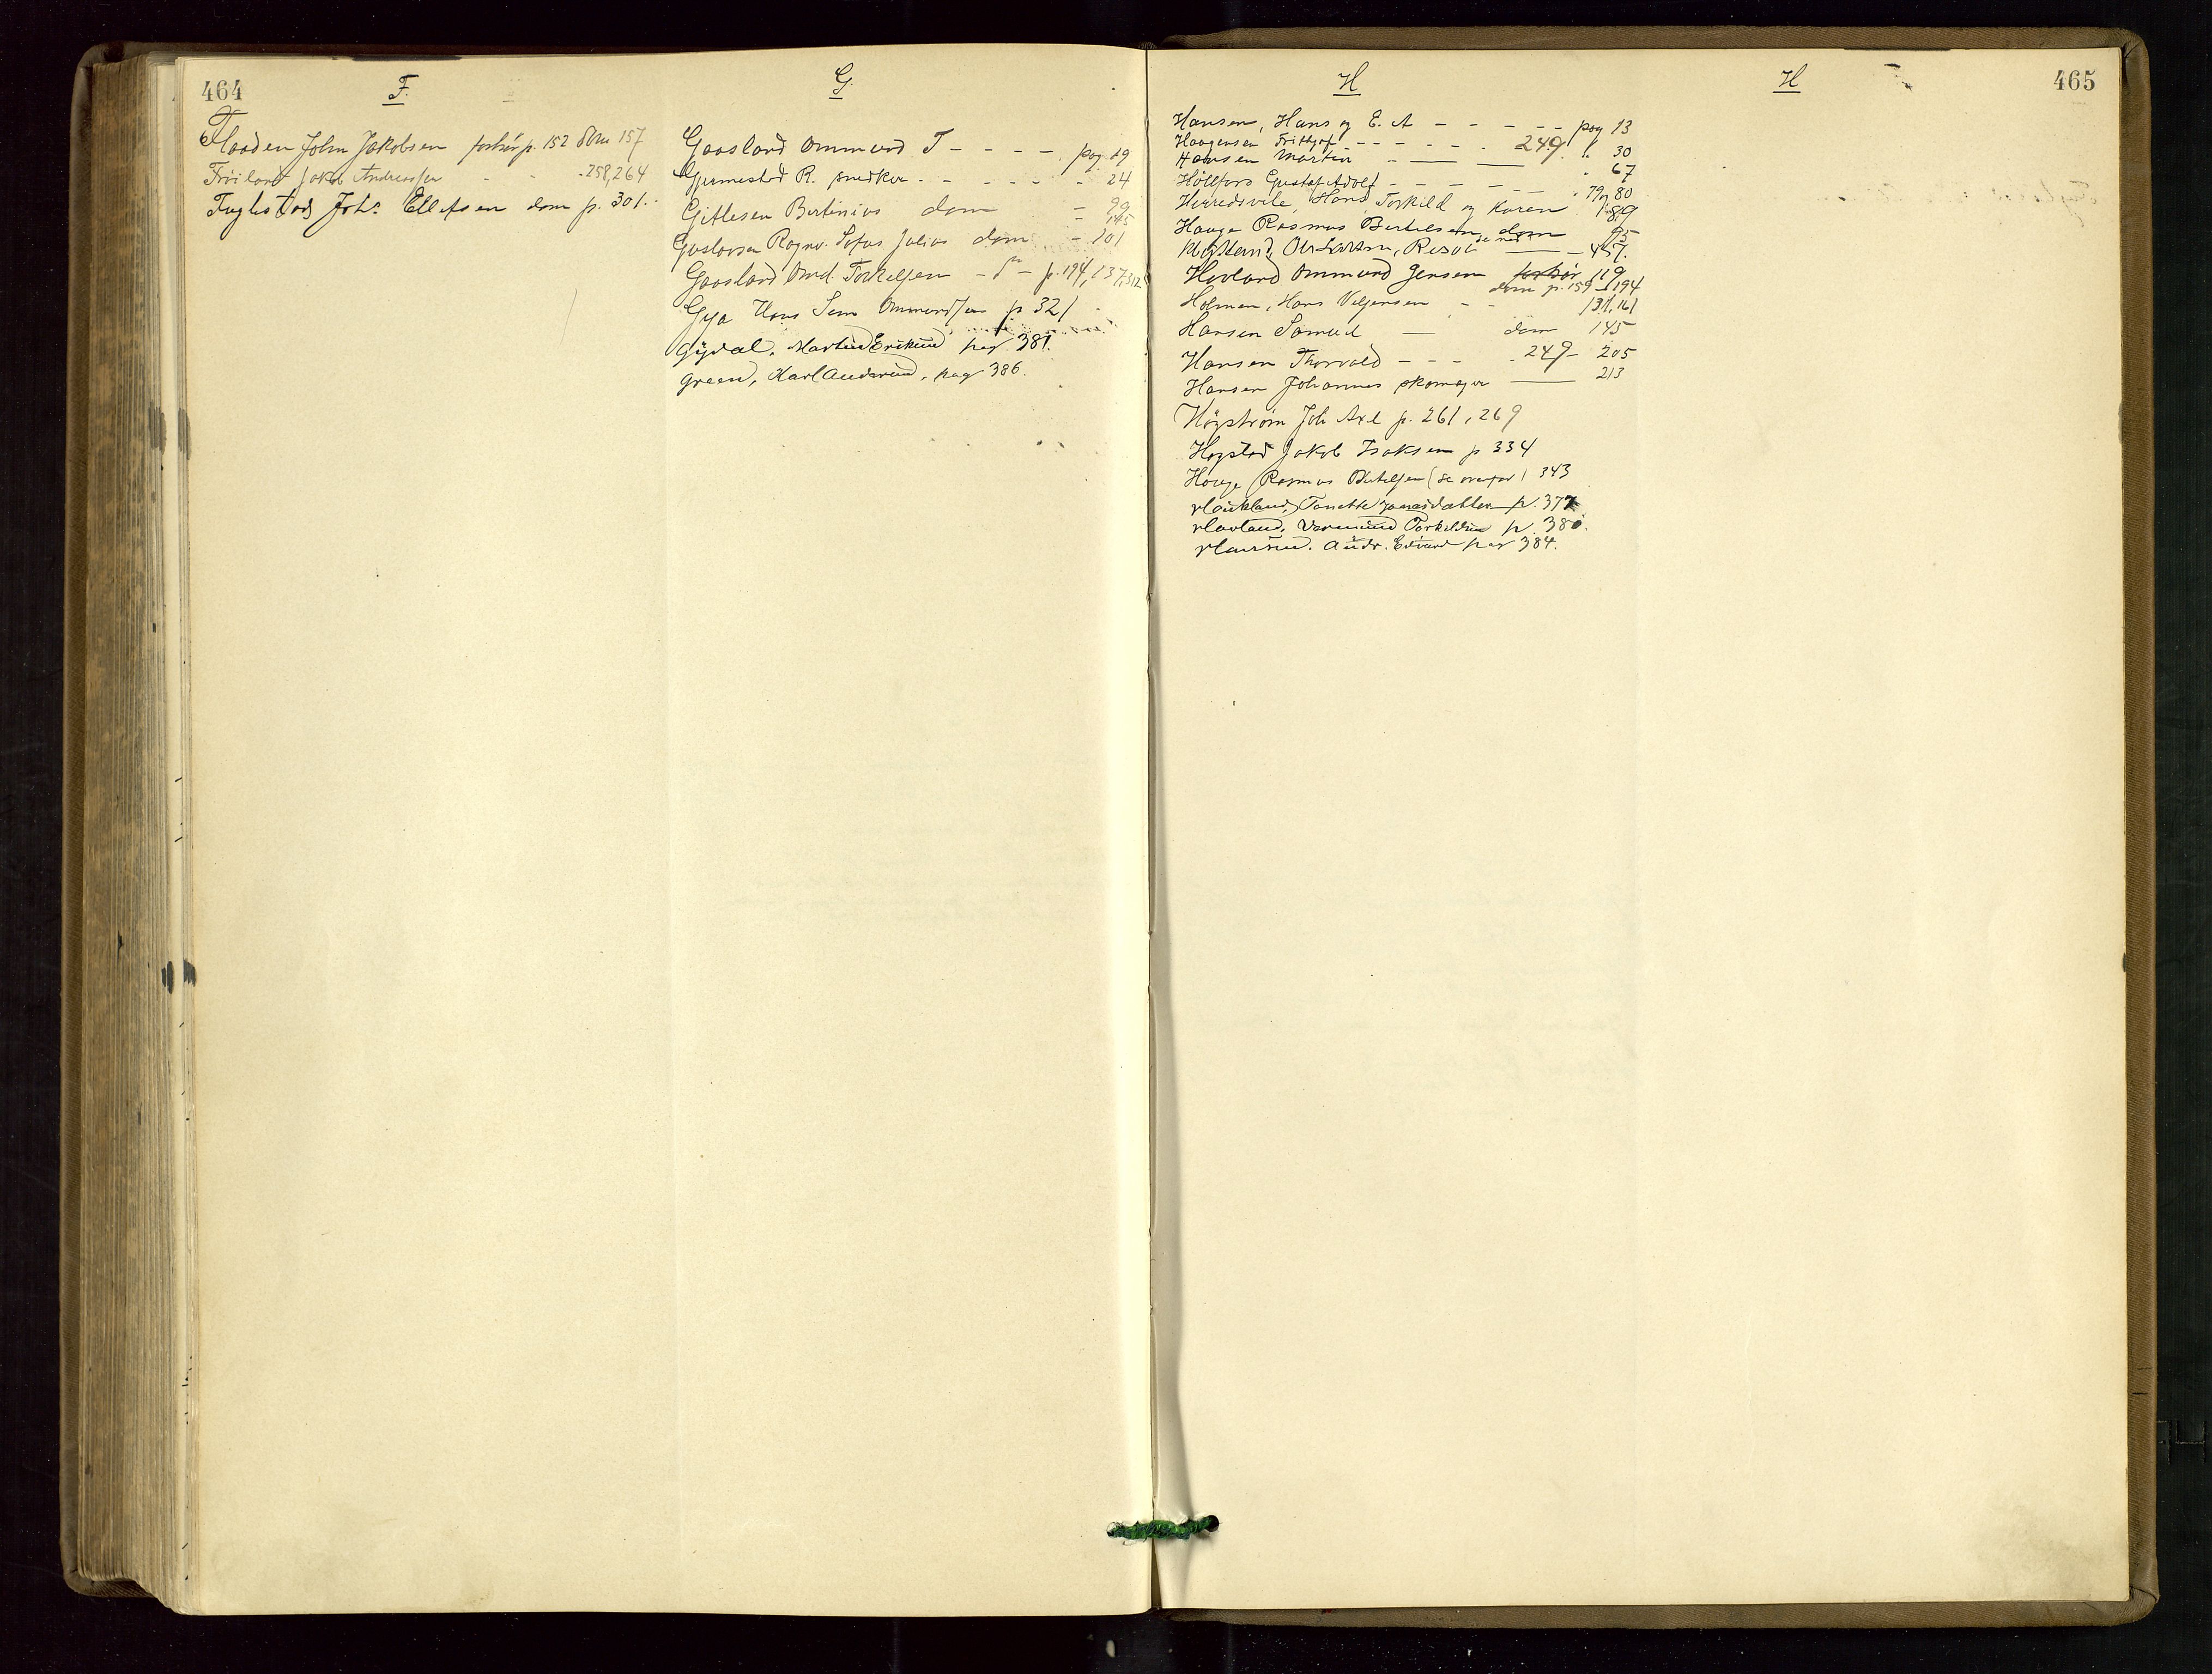 464
F.
Flaaden John Jakobsen forhør p. 152 Dom 157
Fröiland Jakob Andreassen - - - 258,264
Fuglestad Johs. Ellefsen dom p. 301.
G.
Gaasland Ommund T - - - - pag. 19
Gjermestad R. snedker - - - - - 24
Gitlesen Bertinius dom - 99
Gustavsen Ragnv. Sofus Julius dom - 101
Gaasland Omd. Torkelsen - p. 194, 137, 312
Gya Hans Sem Ommundsen p. 321
Gydal, Martin Eriksen pag 381.
Green, Karl Andersen, pag 386.
H
Hansen, Hans og E. A - - - - - pag 13
Haagensen Frithjof - - - - - - 249 30
Hansen Martin - — — " 67
Höllfors Gustaf Adolf - - - - - 79, 80
Herredsvele, Hans Torkild og Karen 89
Hauge Rasmus Bertelsen dom 95
Hovland Ommund Jensen forhør 119
dom p. 159 - 194
Holmen, Hans Veljersen - - 131, 161
Hansen Samuel — dom 145
Hansen Thorvald - - - 249 - 205
Hansen Johannes skomager — 213
Högström Joh Axl p. 261, 269
Hogstad Jakob Isaksen p 334
Hauge Rasmus Bertelsen (se ovenfor) 343
Haukland, Tonette Jonasdatter p. 377
Havland, Torkildsen p. 380.
Hansen, Andr. Edvard pag 384.
H
465